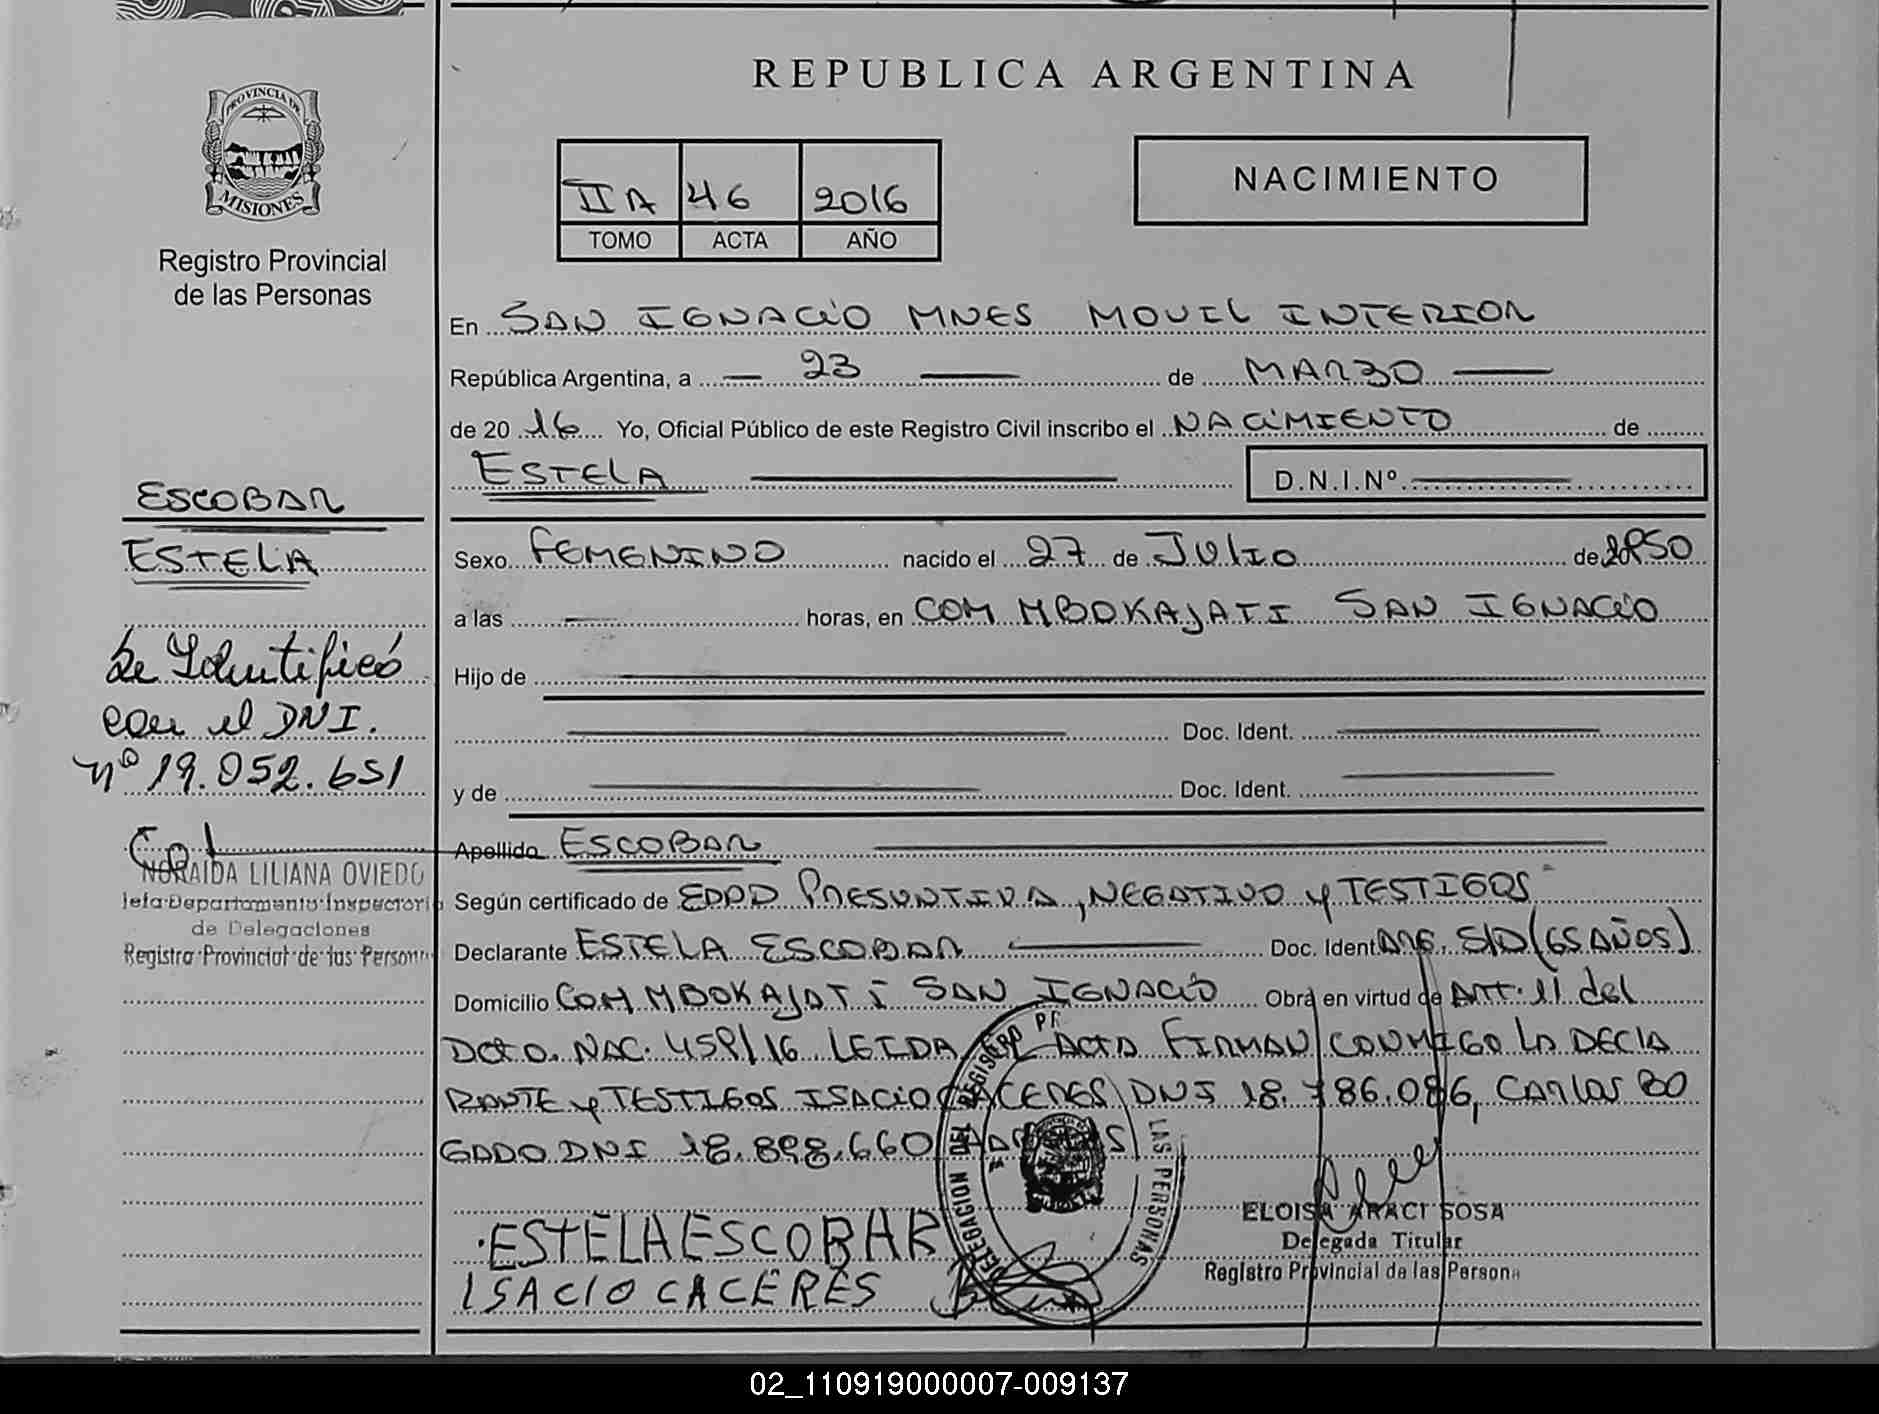 PROVINCIA DE
MISIONES
Registro Provincial
de las Personas
ESCOBAR
ESTELA
Se Identificó
con el DNI.
nº 19.052.651
NORAIDA LILIANA OVIEDO
Jefa Departamento Inspectori
de Delegaciones
Registro Provincial de las Person
REPUBLICA ARGENTINA
IIA 46 2016
TOMO ACTA AÑO
NACIMIENTO
En SAN IGNACIO MNES MOVIL INTERIOR
República Argentina, a 23 de MARZO
de 2016 Yo, Oficial Público de este Registro Civil inscribo el NACIMIENTO de
ESTELA D.N.I.Nº
Sexo FEMENINO nacido el 27 de JULIO de 1950
a las horas, en COM MBOKAJATI SAN IGNACIO
Hijo de
Doc. Ident.
y de Doc. Ident.
Apellido ESCOBAR
Según certificado de EDAD PRESUNTIVA, NEGATIVO y TESTIGOS
Declarante ESTELA ESCOBAR Doc. Ident. ARG. S/D (65 AÑOS)
Domicilio COM MBOKAJATI SAN IGNACIO Obra en virtud de ART. 11 del
DCTO. NAC. 459/16 LEIDA EL ACTA FIRMAN CONMIGO LA DECLA
RANTE y TESTIGOS ISACIO CACERES DNI 18.786.086, CARLOS BO
GADO DNI 18.898.660
ESTELA ESCOBAR
ISACIO CACERES
DELEGACION DEL REGISTRO PR
LAS PERSONAS
ELOISA ARACI SOSA
Delegada Titular
Registro Provincial de las Persona
02_110919000007-009137